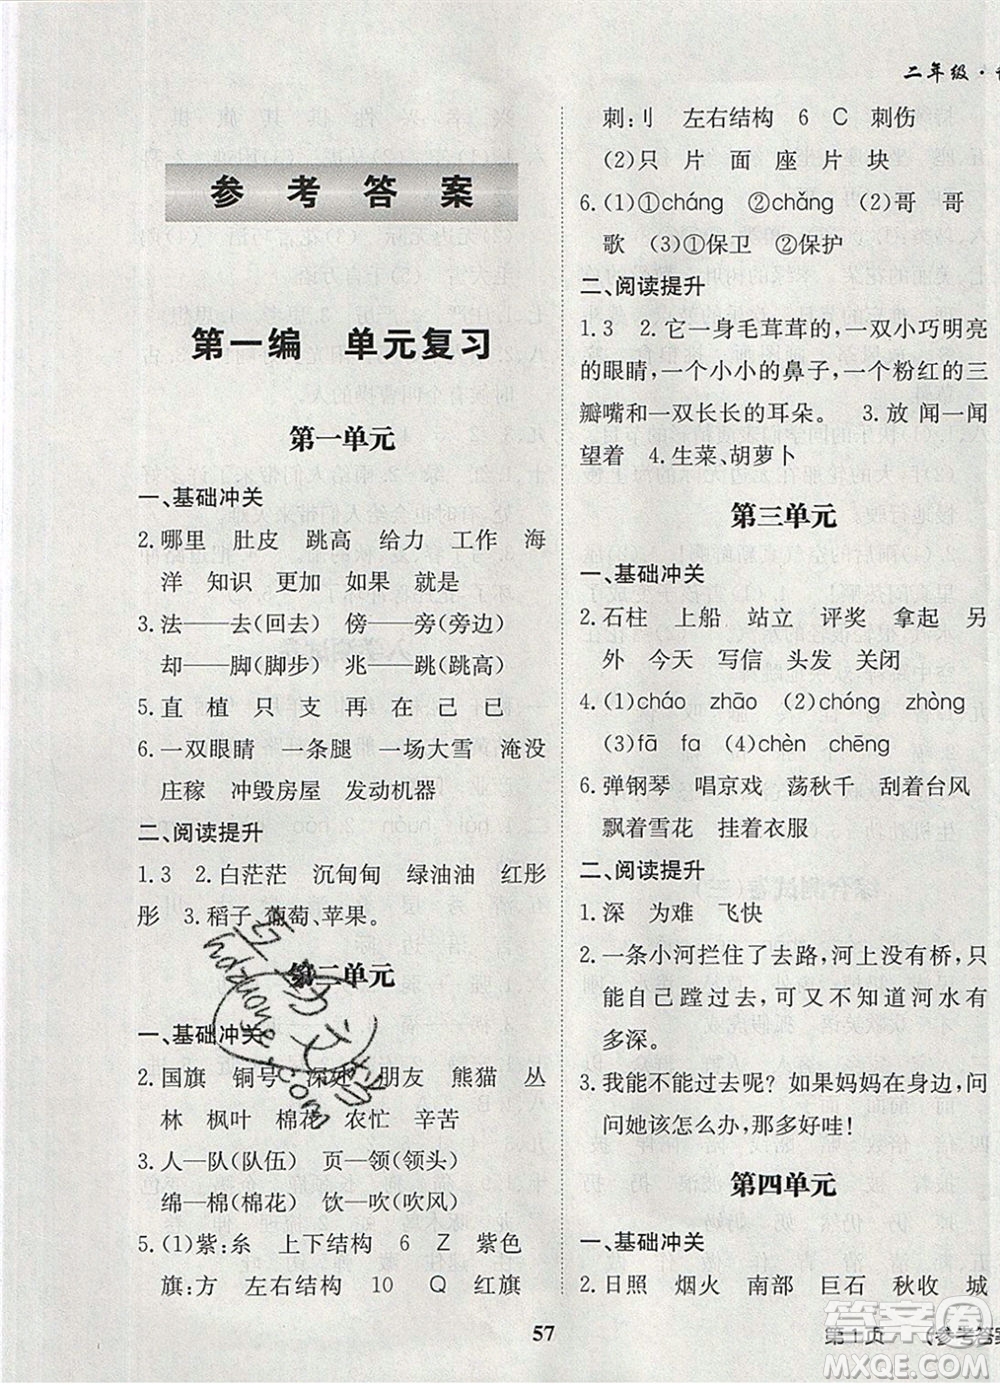 二年级·
参考答案
第一编 单元复习
第一单元
一、基础冲关
2.哪里 肚皮 跳高 给力 工作 海
洋 知识 更加 如果 就是
3.法——去(去掉) 傍——旁(旁边)
却——脚(脚步) 兆——跳(跳高)
5.直 植 只 支 再 在 己 已
6.一双眼睛 一条腿 一场大雪 淹没
庄稼 冲毁房屋 发动机器
二、阅读提升
1.3 2.白茫茫 沉甸甸 绿油油 红彤
彤 3.稻子、葡萄、苹果。
第二单元
一、基础冲关
2.国旗 铜号 深处 朋友 熊猫 丛
林 枫叶 棉花 农忙 辛苦
3.人—队(队伍) 页—领(领头)
绵—棉(棉花) 饮—吹(吹风)
5.(1)紫:糸 上下结构 6 Z 紫色
旗:方 左右结构 10 Q 红旗
刺:刂 左右结构 6 C 刺伤
(2)只 片 面 座 片 块
6.(1)①cháng ②chǎng (2)哥 哥
歌 (3)①保卫 ②保护
二、阅读提升
1.3 2.它一身毛茸茸的,一双小巧明亮
的眼睛,一个小小的鼻子,一个粉红的三
瓣嘴和一双长长的耳朵。 3.放 闻一闻
望着 4.生菜、胡萝卜
第三单元
一、基础冲关
2.石柱 上船 站立 评奖 拿起 另
外 今天 写信 发头 关闭
4.(1)cháo zhāo (2)chóng zhòng
(3)fā fa (4)chèn chēng
6.弹钢琴 唱京戏 荡秋千 刮着台风
飘着雪花 挂着衣服
二、阅读提升
1.深 为难 飞快
2.一条小河拦住了去路,河上没有桥,只
能自己蹚过去,可又不知道河水有
多深。
3.我能不能去问妈妈呢? 如果妈妈在身边,问
问她该怎么办,那多好哇!
第四单元
一、基础冲关
2.日照 烟火 南部 巨石 秋收 城
57
第1页 (参考答案
答案圈
MXQE.COM